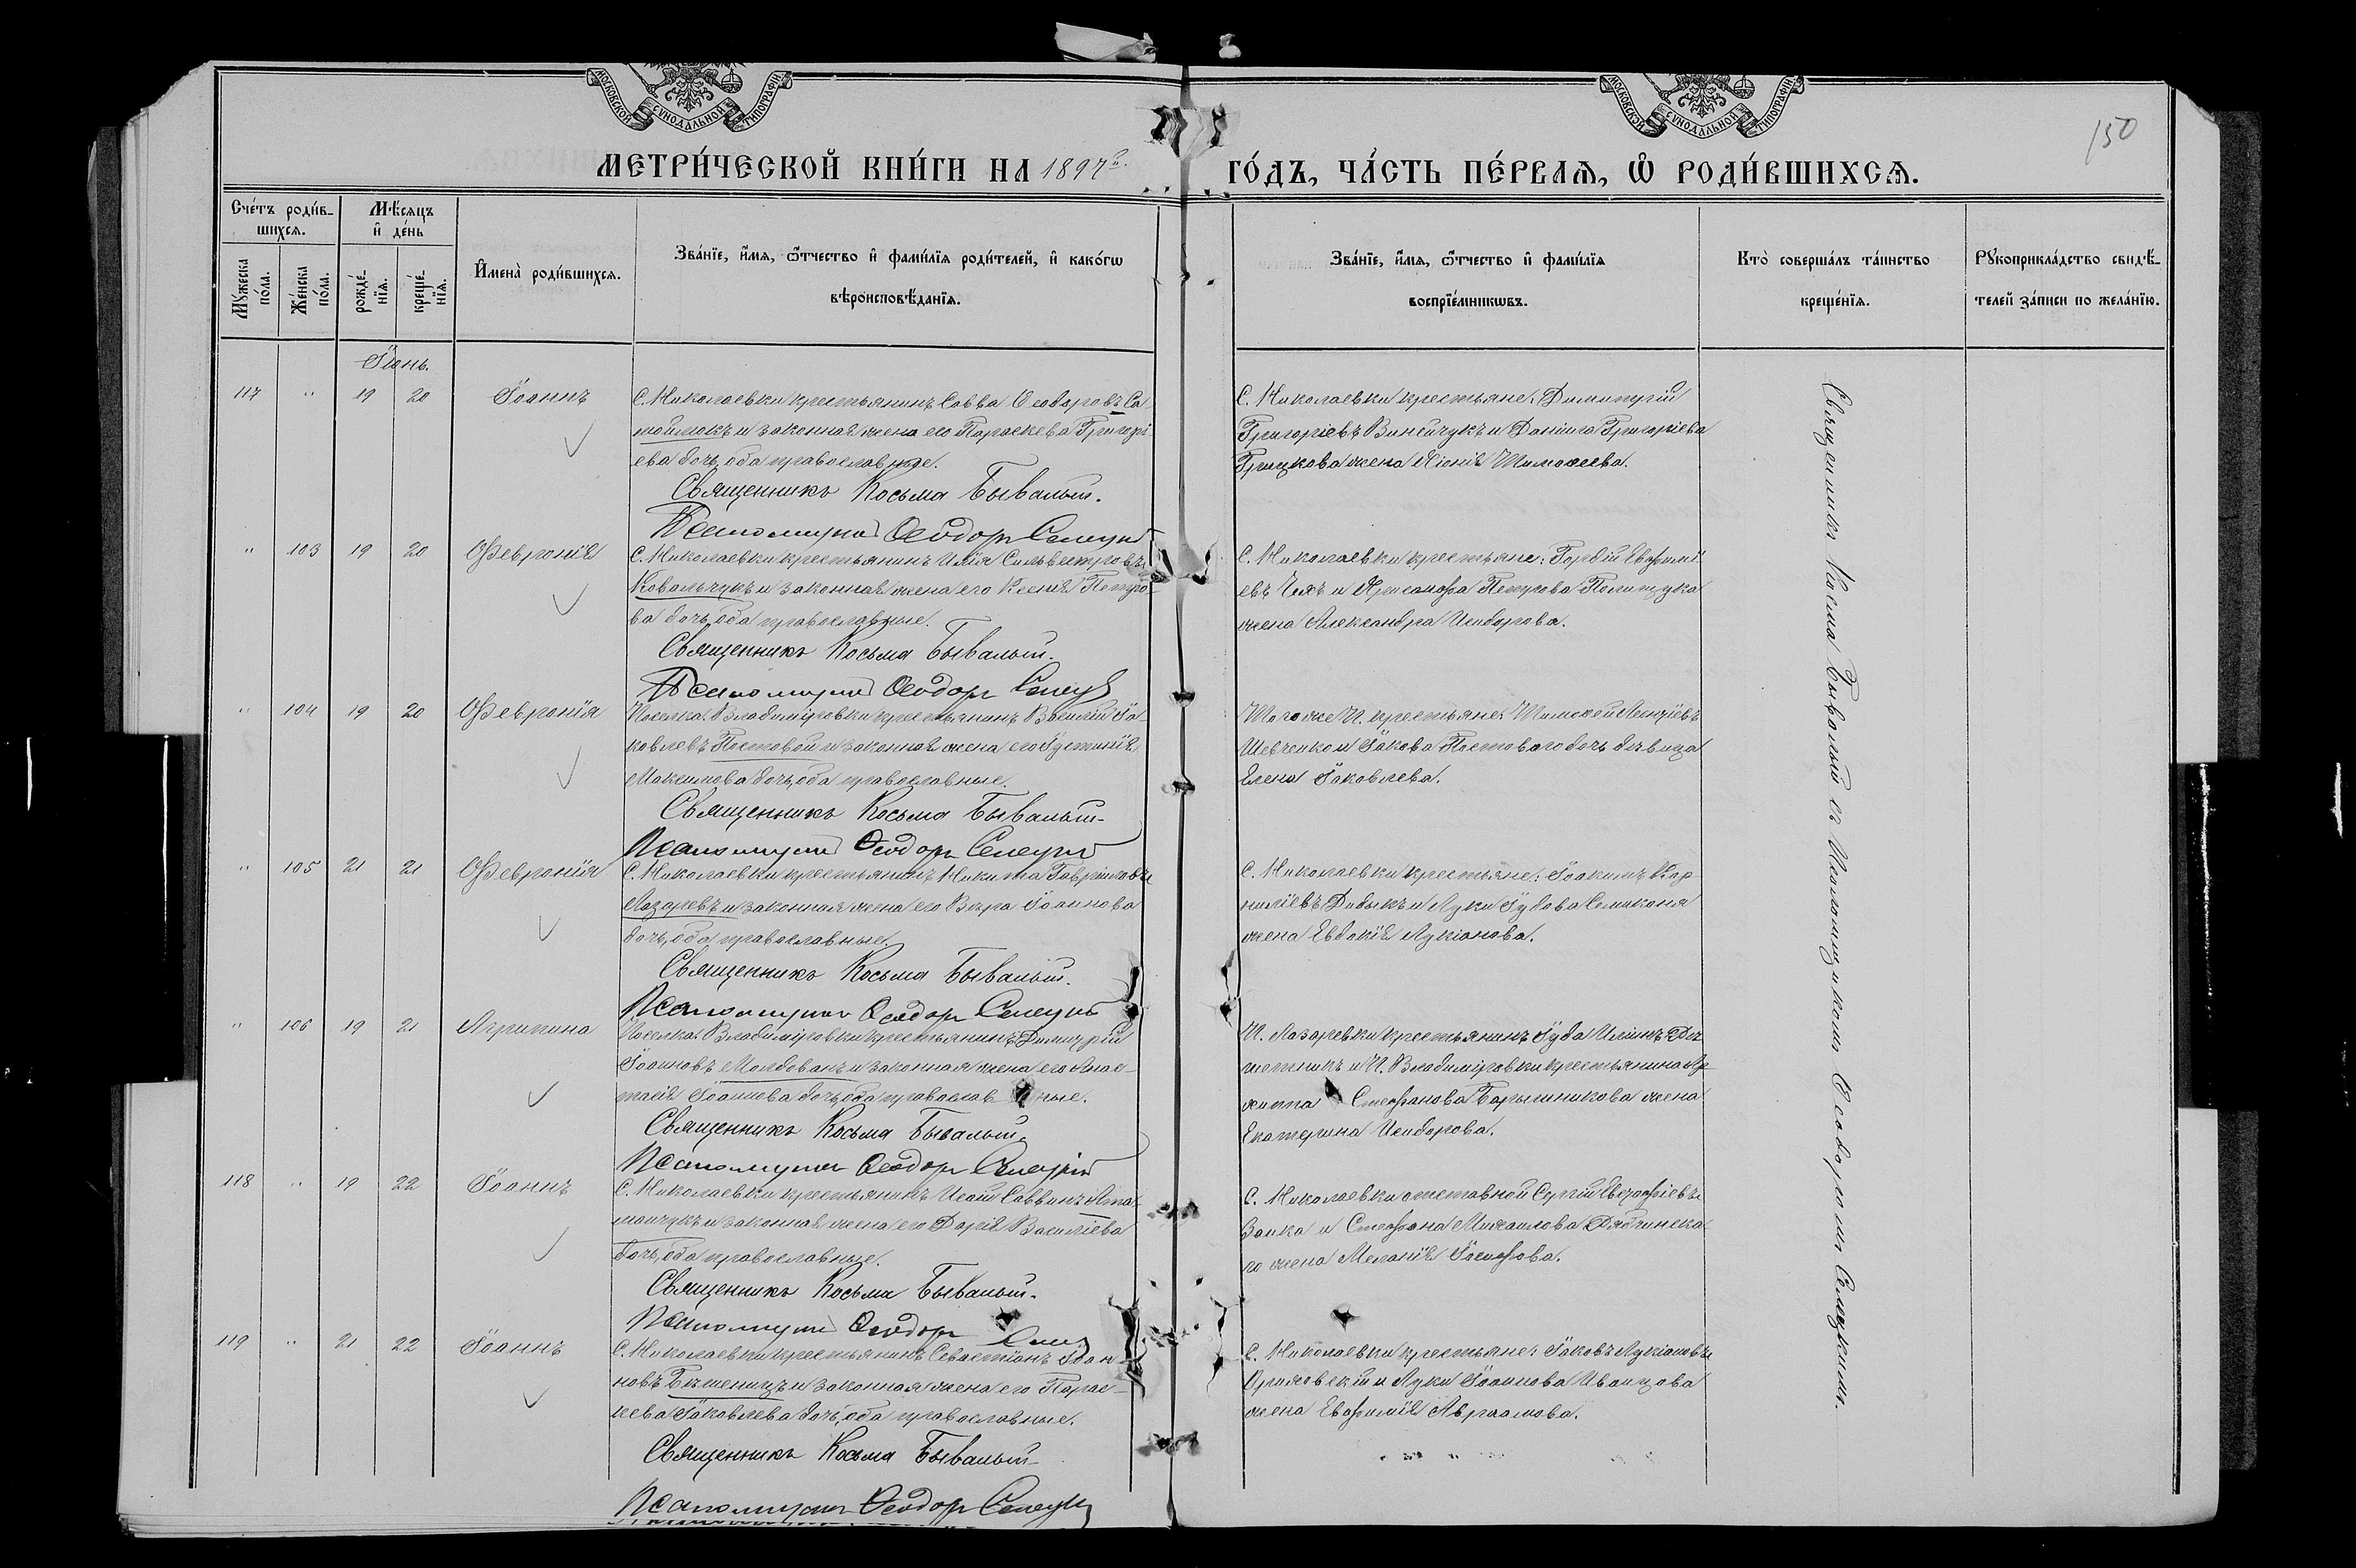 МОСКОВСКОЙ СѴНОДАЛЬНОЙ ТИПОГРАФІИ
МОСКОВСКОЙ СѴНОДАЛЬНОЙ ТИПОГРАФІИ
150
МЕТРИ́ЧЕСКОЙ КНИ́ГИ НА 1897й
ГО́ДЪ, ЧА́СТЬ ПЕ́РВАѦ, Ѡ РОДИ́ВШИХСѦ.
Сче́тъ роди́вшихсѧ.
Мѣ́сяцъ и҆ де́нь
Му́жеска по́ла.
Же́нска по́ла.
рожде́нїѧ.
креще́нїѧ.
И҆мена̀ роди́вшихсѧ.
Зва́нїе, и҆́мѧ, ѻ҆́тчество и҆ фами́лїѧ роди́телей, и҆ како́гѡ
вѣроисповѣ́данїѧ.
Зва́нїе, и҆́мѧ, ѻ҆́тчество и҆ фами́лїѧ
воспрїе́мникѡвъ.
Кто̀ соверша́лъ та́инство
креще́нїѧ.
Рукоприкла́дство свидѣ́-
телей за́писи по жела́нїю.
Іюнь.
117 " 19 20 Іоаннъ
С. Николаевки крестьянинъ Савва Ѳеодоровъ Са-
мойлюкъ и законная жена его Параскева Григорі-
ева дочь, оба православные.
Священникъ Косьма Бывалый.
Псаломщикъ Ѳеодоръ Селецкій
С. Николаевки крестьяне: Димитрій
Григоріевъ Винничукъ и Даніила Григоріева
Грицкова жена Тимоѳеева.
" 103 19 20 Февронія
С. Николаевки крестьянинъ Илія Сильвестровъ
Ковальчукъ и законная жена его Ксенія Петро-
ва дочь, оба православные.
Священникъ Косьма Бывалый.
Псаломщикъ Ѳеодоръ Селецкій
С. Николаевки крестьяне: Гордій Евѳимі-
евъ и Петрова Полищука
жена Александра Исидорова.
" 104 19 20 Февронія
Поселка Владиміровки крестьянинъ Василій Іа-
ковлевъ Постовой и законная жена его Іустинія
Максимова дочь, оба православные.
Священникъ Косьма Бывалый.
Псаломщикъ Ѳеодоръ Селецкій
Того же п. крестьяне: Тимоѳей
Шевченко и Іакова Постоваго дочь дѣвица
Елена Іаковлева.
" 105 21 21 Февронія
С. Николаевки крестьянинъ Никита Гавріиловъ
Лазаревъ и законная жена его Вѣра Іоаннова
дочь, оба православные.
Священникъ Косьма Бывалый.
Псаломщикъ Ѳеодоръ Селецкій
С. Николаевки крестьяне: Іоакимъ Кор-
ниліевъ Дидыкъ и Луки Іудова
жена Евдокія Лукіанова.
" 106 19 21 Агрипина
Поселка Владиміровки крестьянинъ Димитрій
Іоанновъ Молдованъ и законная жена его Анас-
тасія Іоаннова дочь, оба православные.
Священникъ Косьма Бывалый.
Псаломщикъ Ѳеодоръ Селецкій
П. Лазаревки крестьянинъ Іуда Иліинъ
и П. Владиміровки крестьянина Ар-
хиппа Стефанова Барышникова жена
Екатерина Исидорова.
118 " 19 22 Іоаннъ
С. Николаевки крестьянинъ Исаій Саввинъ Ата-
манчукъ и законная жена его Дарія Василіева
дочь, оба православные.
Священникъ Косьма Бывалый.
Псаломщикъ Ѳеодоръ
С. Николаевки отставной Сергій
Заика и Стефана Михаилова
го жена Меланія Іосифова.
119 " 21 22 Іоаннъ
С. Николаевки крестьянинъ Севастіанъ Іоан-
новъ и законная жена его Парас-
кева Іаковлева дочь, оба православные.
Священникъ Косьма Бывалый.
Псаломщикъ Ѳеодоръ Селецкій
С. Николаевки крестьяне: Іаковъ Лукіановъ
и Луки Іоаннова Иванцова
жена Евѳимія Авраамова.
Священникъ Косьма Бывалый съ Псаломщикомъ Ѳеодоромъ Селецкимъ.